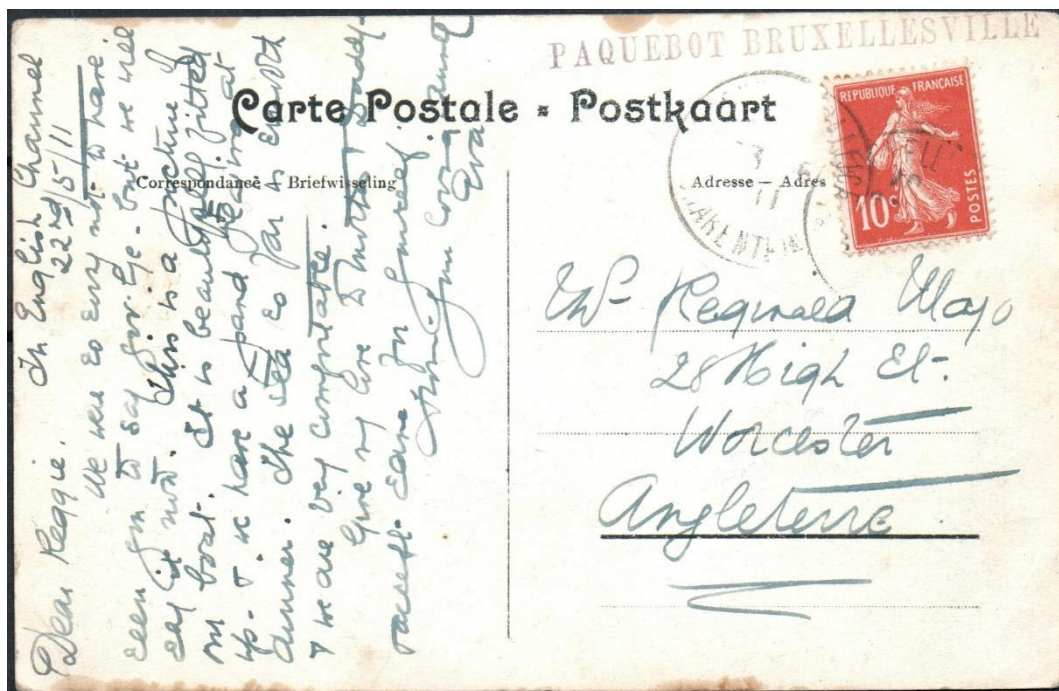 PAQUEBOT BRUXELLESVILLE
Carte Postale Postkaart
Correspondance — Briefwisseling
Adresse — Adres
REPUBLIQUE FRANÇAISE
10c
POSTES
11
In English Channel
22nd/5/11
Dear Reggie.
We were so sorry not to have
seen you to say good-bye - but we will
say it now. This is a picture of
our boat. It is beautifully fitted
up - & we have a band playing at
dinner. The sea so far is smooth
& we are very comfortable.
Give my love to Mother & Daddy
for yourself
from your
Eva
Mr Reginald Mayo
28 High St.
Worcester
Angleterre